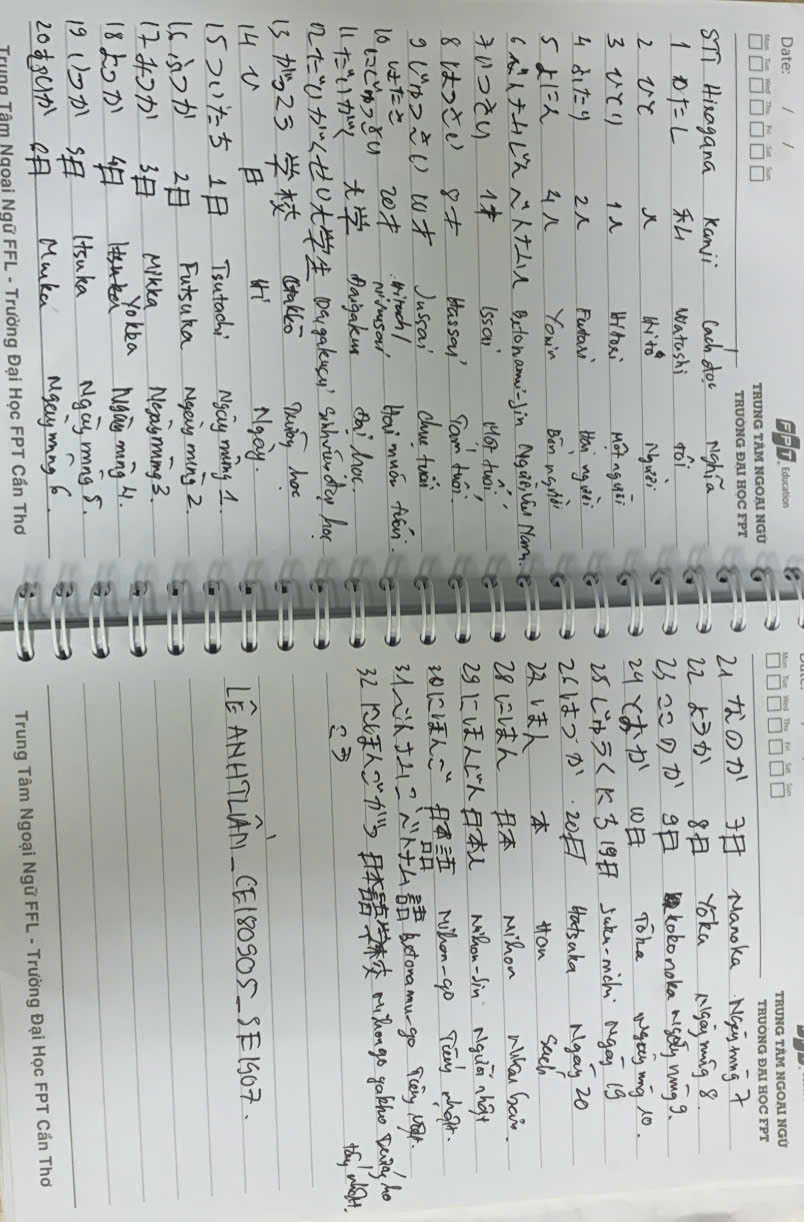 Date: / /
Mon Tue Wed Thu Fri Sat Sun
FPT Education
TRUNG TÂM NGOẠI NGỮ
TRƯỜNG ĐẠI HỌC FPT
STT Hiragana Kanji Cách đọc Nghĩa
1 わたし 私 Watashi Tôi
2 ひと 人 Hito Người
3 ひとり 1人 Hitori Một người
4 ふたり 2人 Futari Hai người
5 よにん 4人 Yonin Bốn người
6 べトナムじん べトナム人 Betonamu-jin Người Việt Nam.
7 いっさい 1才 Issai Một tuổi
8 はっさい 8才 Hassai Tám tuổi.
9 じゅっさい 10才 Jussai chục tuổi
10 はたち 20才 Hitachi/ Hai mươi tuổi.
にじゅっさい
11 だいがく 大学 Daigaku đại học.
12 だいがくせい 大学生 Daigakusei Sinh viên đại học
13 がっこう 学校 Gakkō Trường học
14 ひ 日 Hi Ngày.
15 ついたち 1日 Tsutachi Ngày mùng 1.
16 ふつか 2日 Futsuka Ngày mùng 2.
17 みっか 3日 Mikka Ngày mùng 3.
18 よっか 4日 Yokka Ngày mùng 4.
19 いつか 5日 Itsuka Ngày mùng 5.
20 むいか 6日 Muika Ngày mùng 6.
Trung Tâm Ngoại Ngữ FFL - Trường Đại Học FPT Cần Thơ
Mon Tue Wed Thu Fri Sat Sun
TRUNG TÂM NGOẠI NGỮ
TRƯỜNG ĐẠI HỌC FPT
21 なのか 7日 Nanoka Ngày mùng 7
22 ようか 8日 Yōka Ngày mùng 8.
23 ここのか 9日 kokonoka Ngày mùng 9.
24 とおか 10日 Tōka Ngày mùng 10.
25 じゅうくにち 19日 Juku-nichi Ngày 19
26 はつか 20日 Hatsuka Ngày 20
27 ほん 本 Hon Sách
28 にほん 日本 Nihon Nhật bản.
29 にほんじん 日本人 Nihon-jin Người nhật
30 にほんご 日本語 Nihon-go Tiếng nhật.
31 べトナムご べトナム語 betonamu-go Tiếng Việt.
32 にほんごがっ 日本語学校 Nihongo gakkō
こう tiếng nhật.
LÊ ANH TUẤN_CE180905_SE1907.
Trung Tâm Ngoại Ngữ FFL - Trường Đại Học FPT Cần Thơ